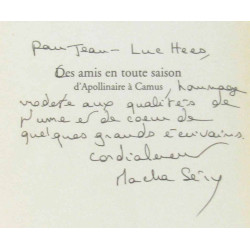 Pour Jean-Luc Hees,
Des amis en toute saison
d'Apollinaire à Camus, hommage
modeste aux qualités de
plume et de coeur de
quelques grands écrivains.
Cordialement
Macha Séry